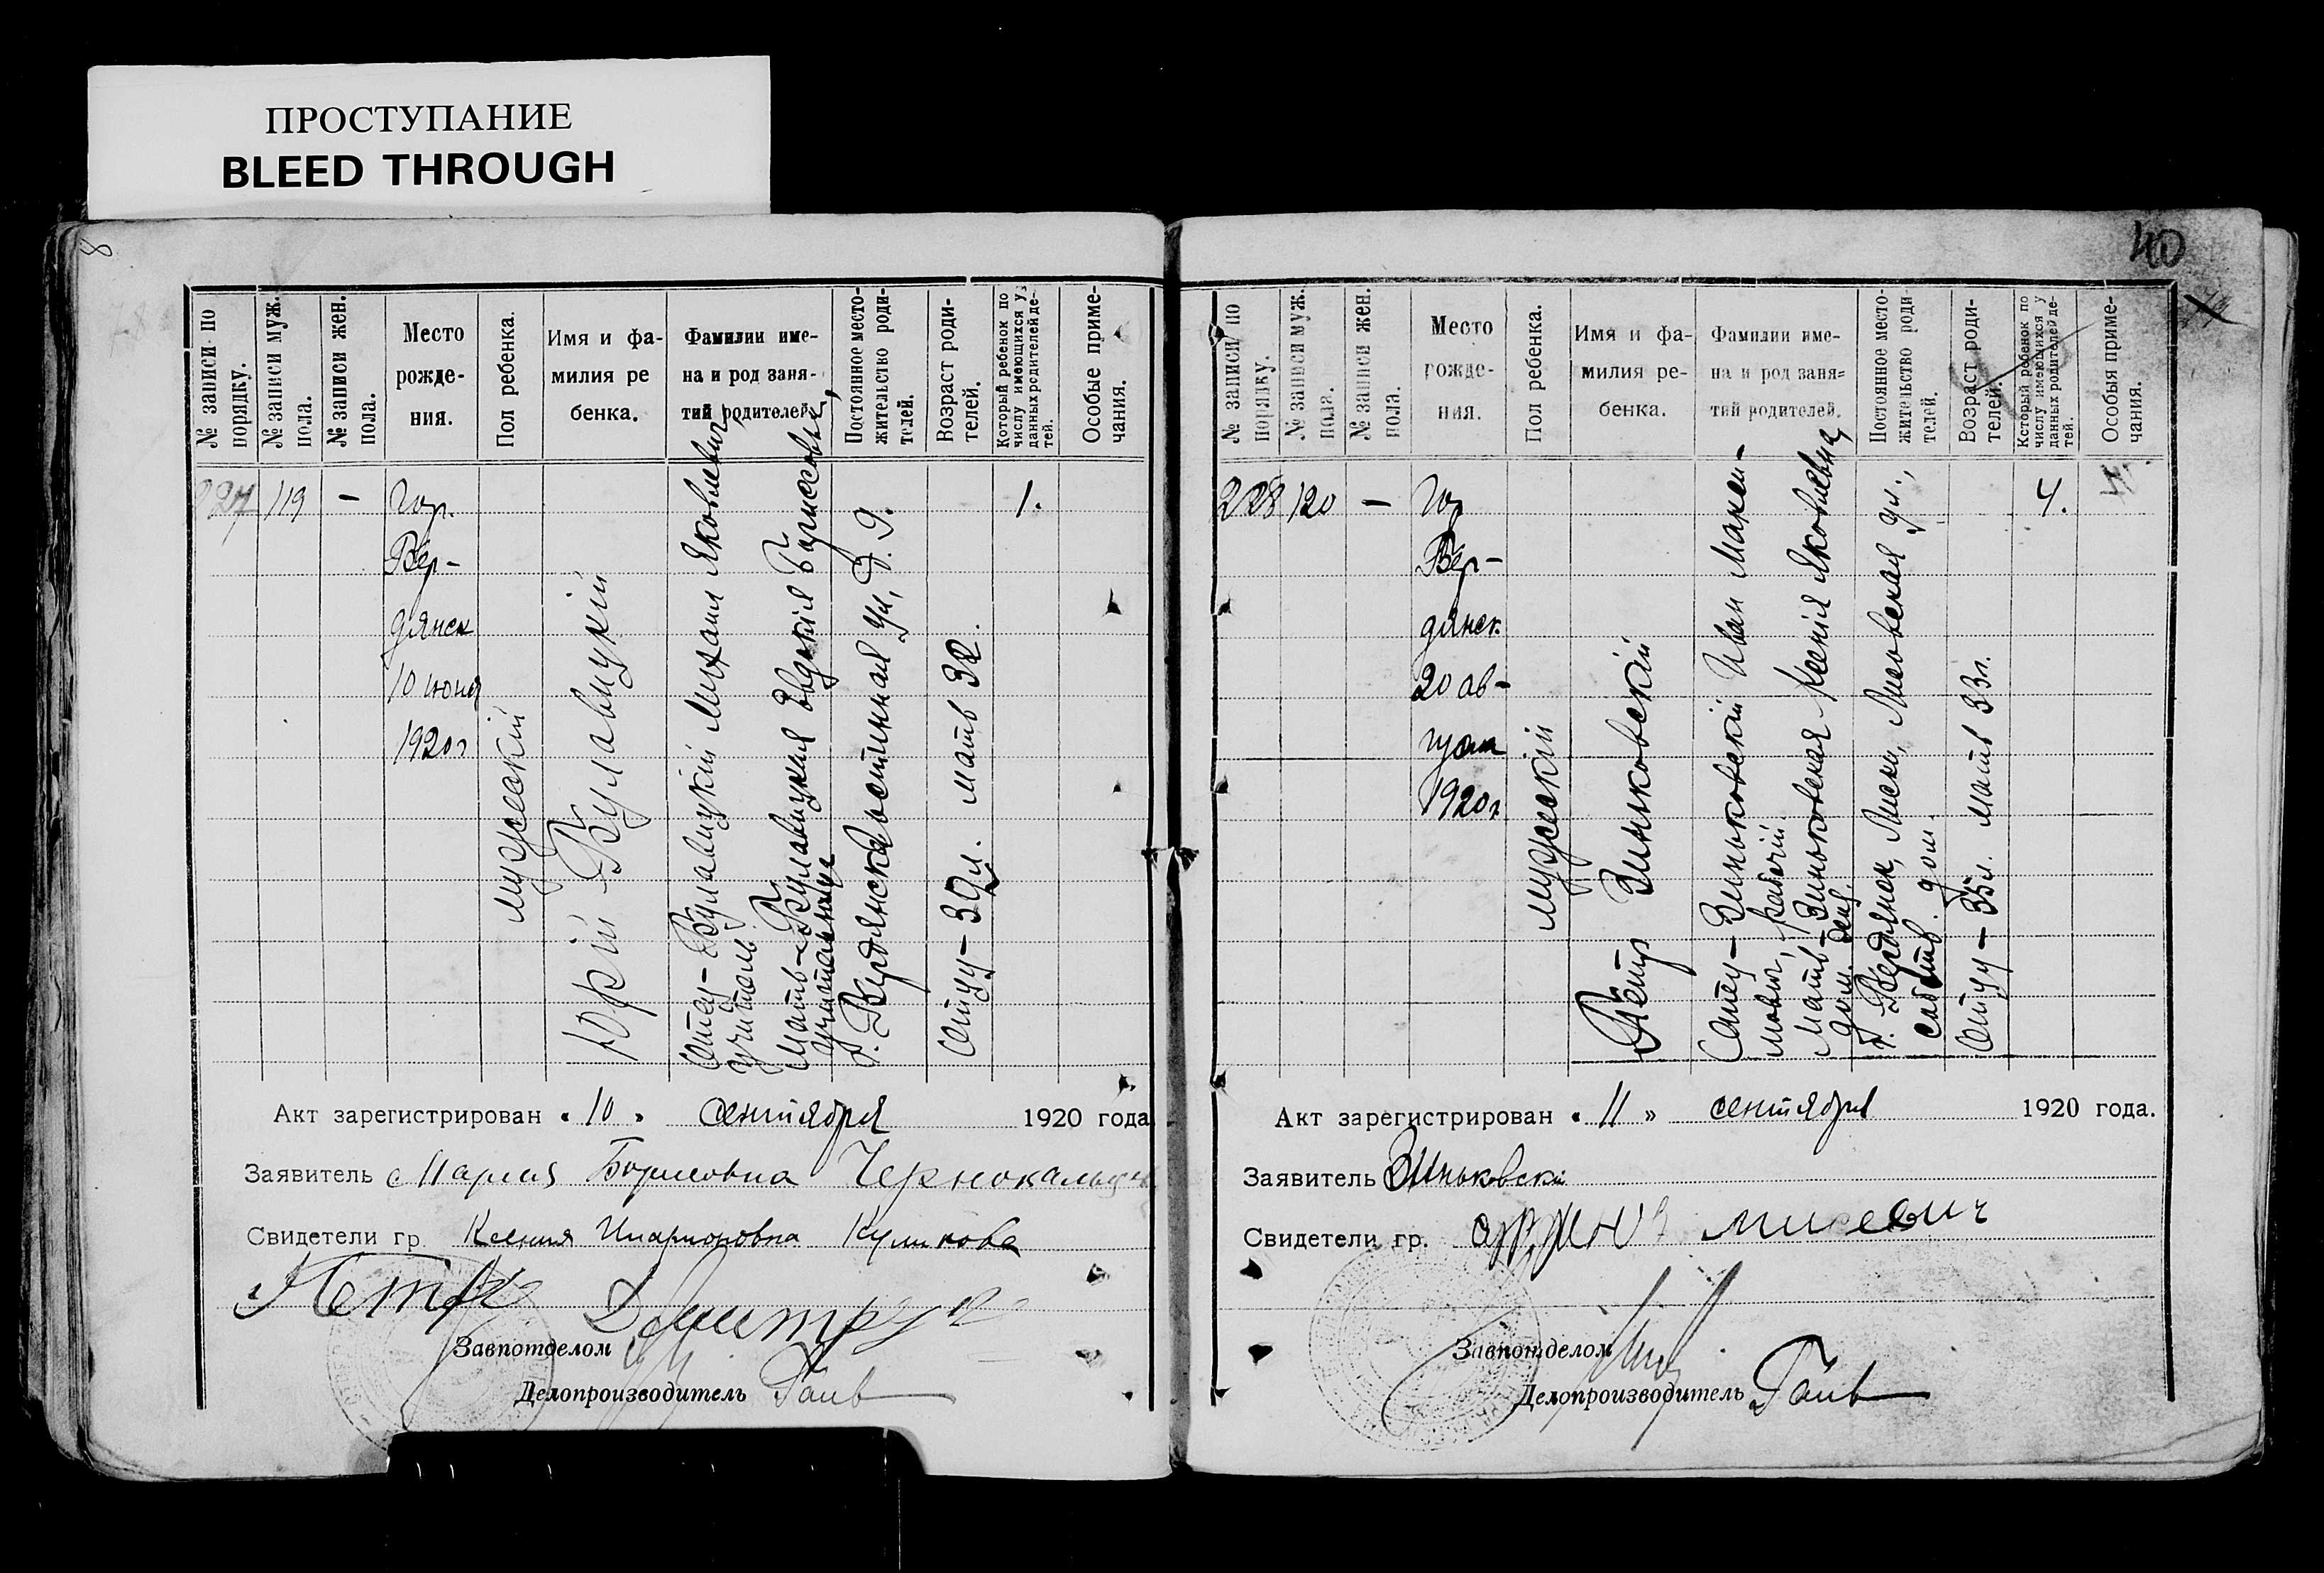 ПРОСТУПАНИЕ
BLEED THROUGH
8
№ записи по
порядку.
№ записи муж.
пола.
№ записи жен.
пола.
Место
рожде-
ния.
Пол ребенка.
Имя и фа-
милия ре
бенка.
Фамилии име-
на и род заня-
тий родителей.
Постоянное место-
жительство роди-
телей.
Возраст роди-
телей.
Который ребенок по
числу имеющихся у
данных родителей де-
тей.
Особые приме-
чания.
227
119
–
Гор.
Бер-
дянск
10 июня
1920 г
мужеский
Юрій Булавицкій
Отец – Булавицкій Михаил Яковлевич,
учитель.
Мать – Булавицкая Евдокія Борисовна,
учительница
г. Бердянск, ул, д. 9.
Отцу – 39 л. мать 32.
1.
Акт зарегистрирован « 10 » сентября 1920 года
Заявитель Мария Борисовна
Свидетели гр. Ксения Иларионовна Куликова
Петр
Завпотделом
Делопроизводитель
40
№ записи по
порядку.
№ записи муж.
пола.
№ записи жен.
пола.
Место
рожде-
ния.
Пол ребенка.
Имя и фа-
милия ре-
бенка.
Фамилии име-
на и род заня-
тий родителей.
Постоянное место-
жительство роди-
телей.
Возраст роди-
телей.
Который ребенок по
числу имеющихся у
данных родителей де-
тей.
Особыя приме-
чания.
228
120
–
Гор
Бер-
дянск.
20 ав-
густа
1920 г.
мужескій
Петр Зиньковскій
Отец – Зиньковскій Иван Макси-
мович, рабочій.
Мать – Зиньковская Ксенія Яковлевна,
дом. хоз.
г. Бердянск, Лиски, Лисовская ул.,
собств. дом.
Отцу – 35 л. мать 33 г.
4.
Акт зарегистрирован « 11 » сентября 1920 года.
Заявитель Зиньковскі
Свидетели гр.
Завпотделом
Делопроизводитель